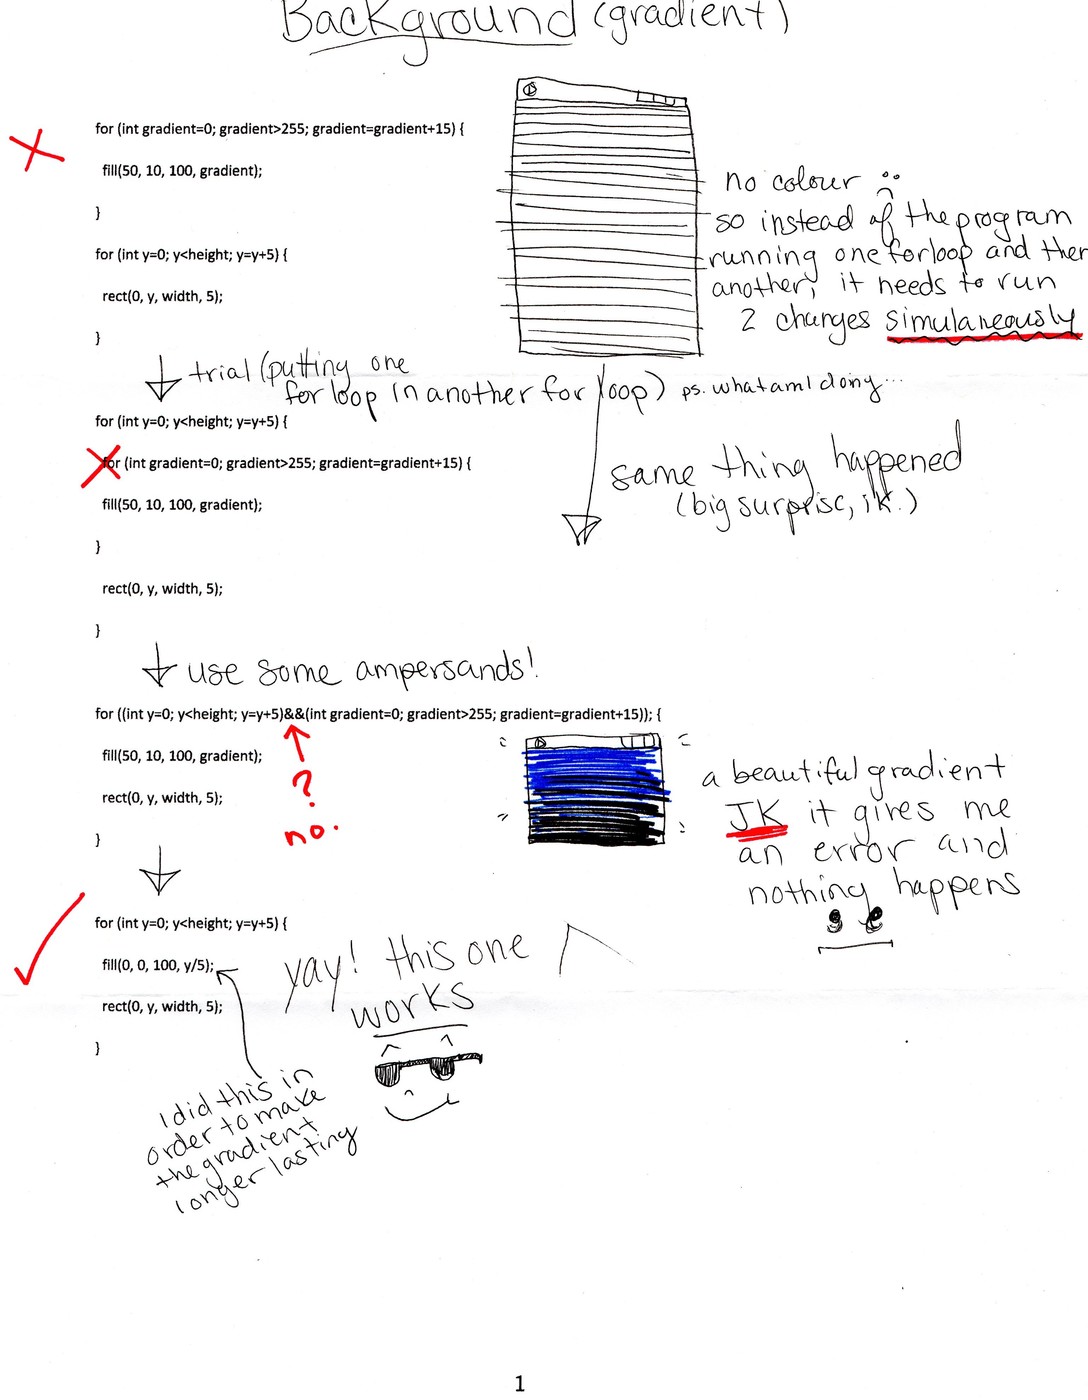 Background (gradient)
for (int gradient=0; gradient>255; gradient=gradient+15) {
fill(50, 10, 100, gradient);
}
for (int y=0; y<height; y=y+5) {
rect(0, y, width, 5);
}
no colour
so instead of the program
running one for loop and then
another, it needs to run
2 changes simulaneously
trial (putting one
for loop in another for loop) ps. what am I doing...
for (int y=0; y<height; y=y+5) {
for (int gradient=0; gradient>255; gradient=gradient+15) {
fill(50, 10, 100, gradient);
}
rect(0, y, width, 5);
}
same thing happened
(big surprise, ik.)
use some ampersands!
for ((int y=0; y<height; y=y+5)&&(int gradient=0; gradient>255; gradient=gradient+15)); {
fill(50, 10, 100, gradient);
rect(0, y, width, 5);
}
?
no.
a beautiful gradient
JK it gives me
an error and
nothing happens
for (int y=0; y<height; y=y+5) {
fill(0, 0, 100, y/5);
rect(0, y, width, 5);
}
yay! this one
works
I did this in
order to make
the gradient
longer lasting
1